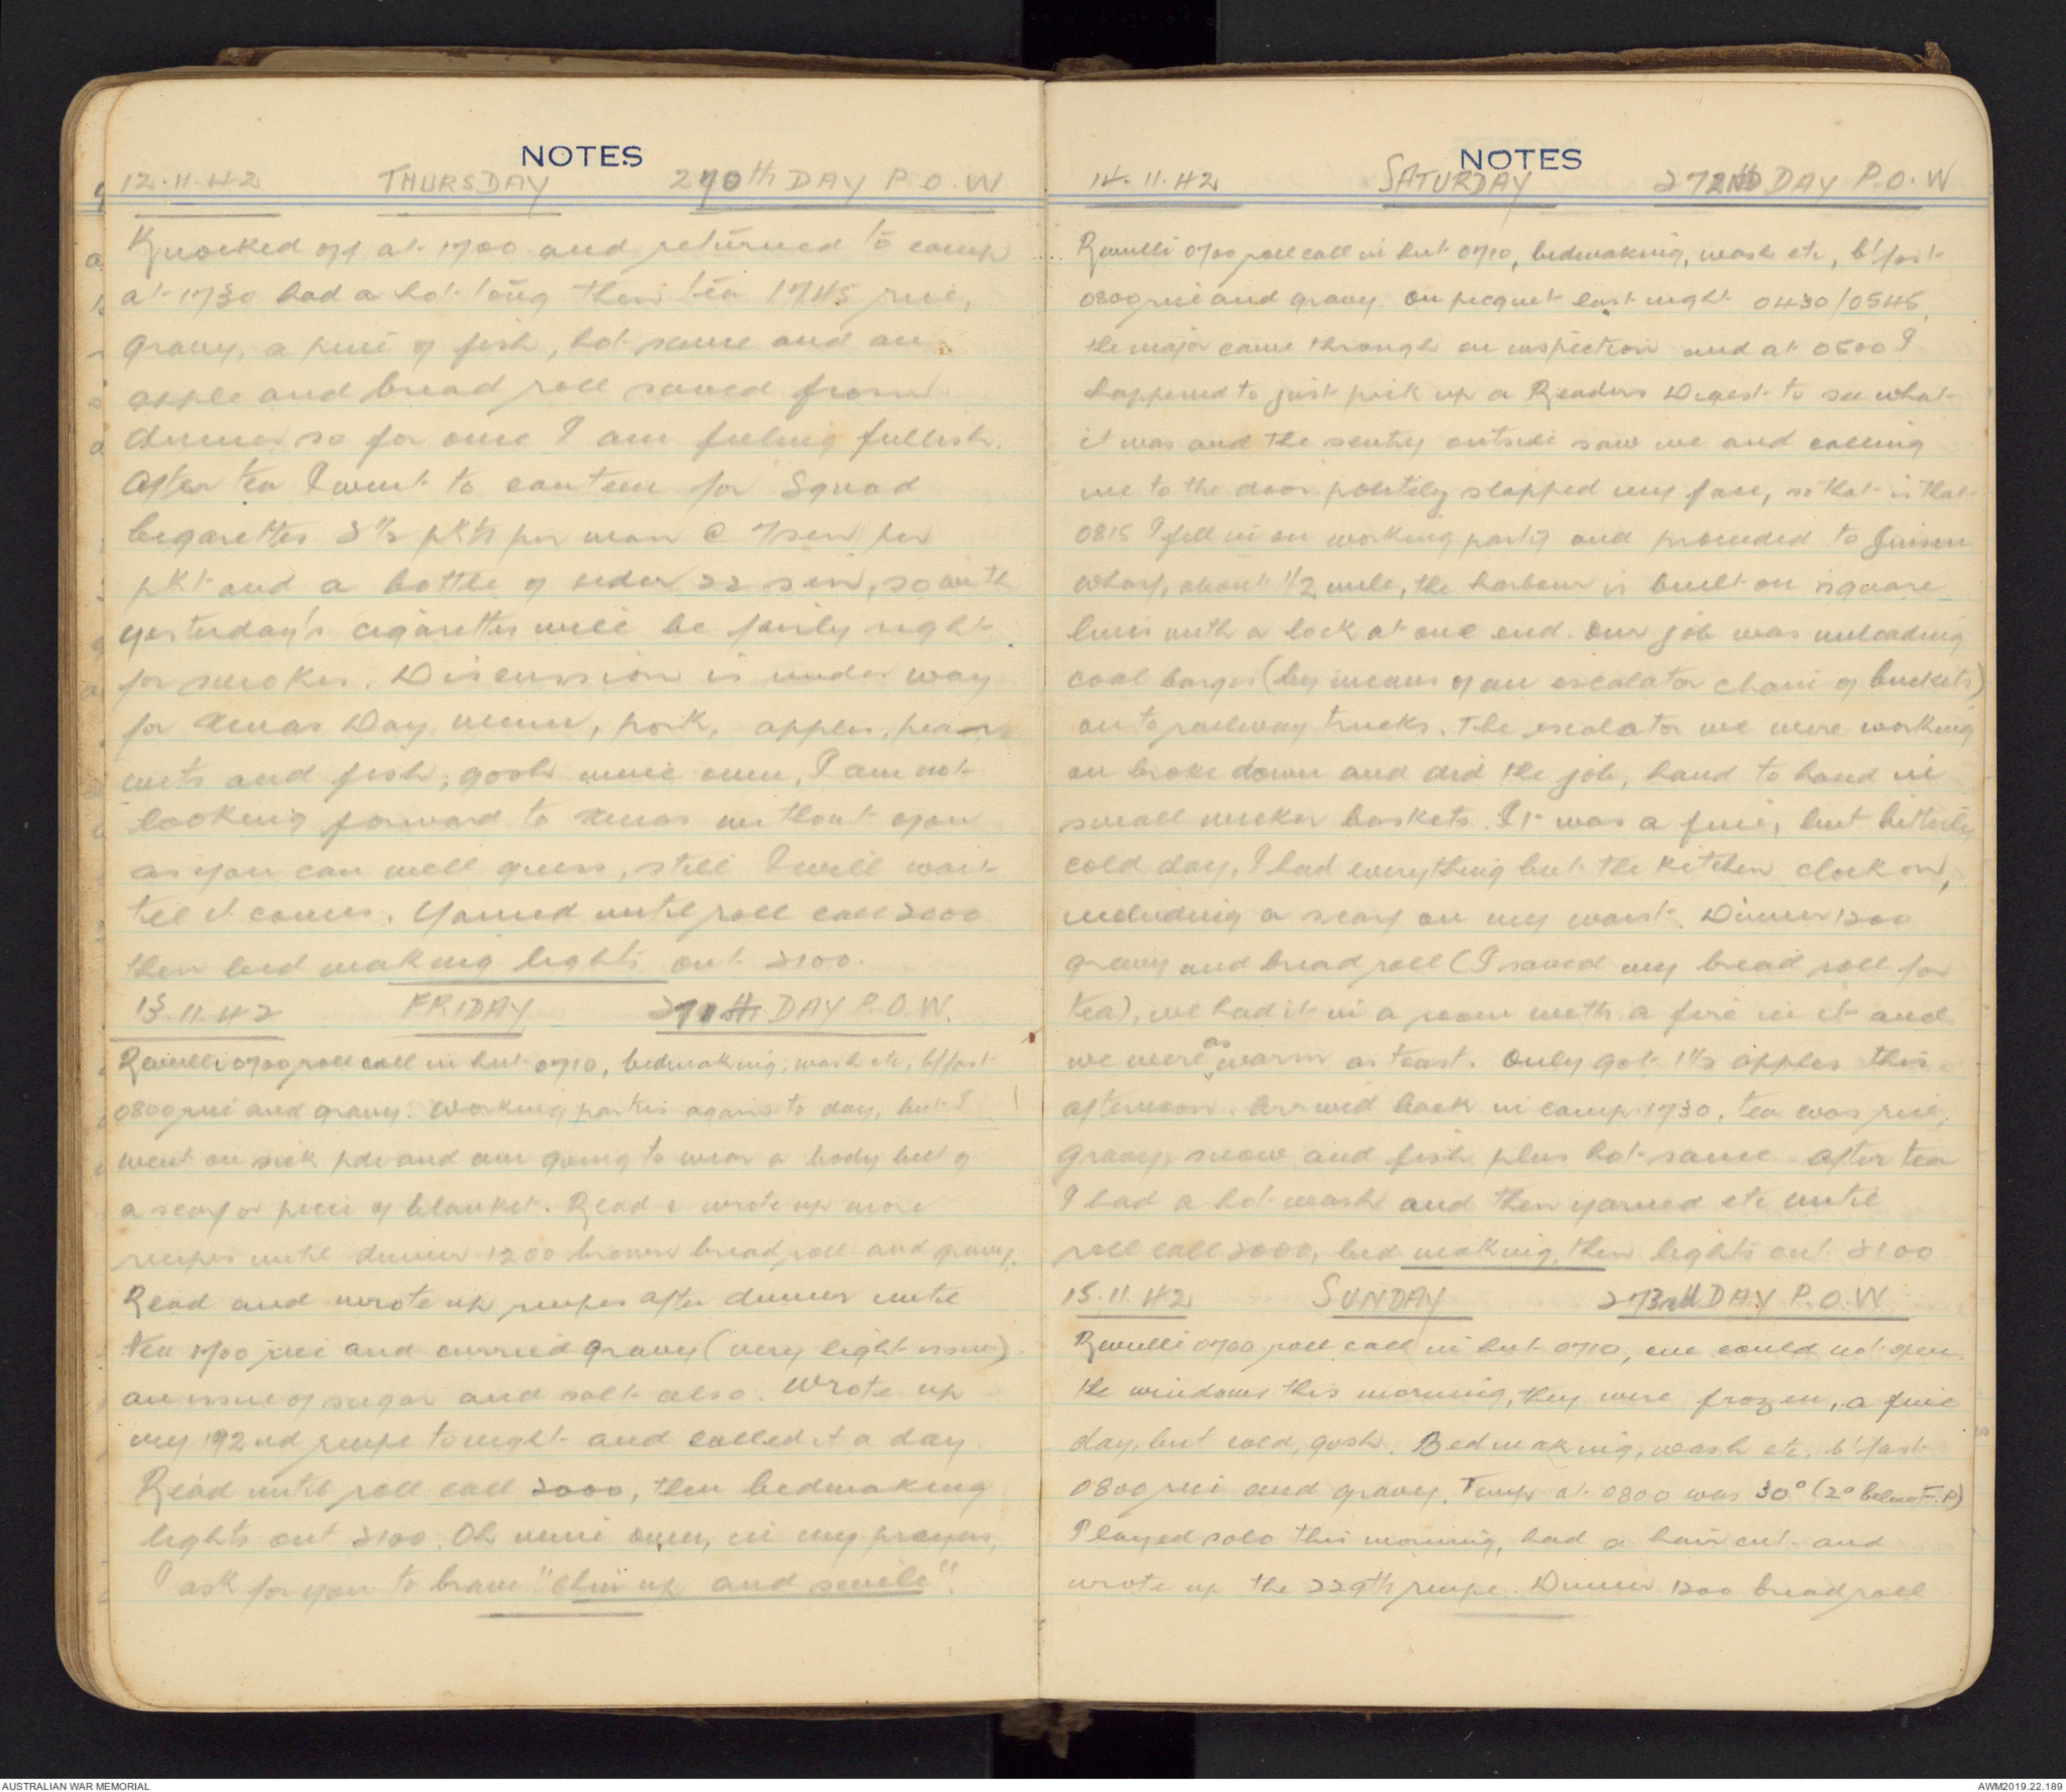 NOTES
12.11.42 THURSDAY 270th DAY P.O.W
Knocked off at 1700 and returned to camp
at 1730 had a hot tong then tea 1745 rice,
gravy, a piece of fish, hot sauce and an
apple and bread roll saved from
dinner so for once I am feeling fullish.
After tea I went to canteen for Squad
Cigarettes 3 1/2 pkts per man @ 7 sen per
pkt and a bottle of cider 22 sen, so with
yesterday's cigarettes will be fairly right
for smokes. Discussion is under way
for Xmas Day menu, pork, apples, pears
nuts and fish, gosh mine own, I am not
looking forward to Xmas without you
as you can well guess, still I will wait
till it comes. Yarned until roll call 2000
then bed making lights out 2100.
13.11.42 FRIDAY 271st DAY P.O.W.
Reveille 0700 roll call in hut 0710, bedmaking, wash etc, b'fast
0800 rice and gravy. Working parties again to day, but I
went on sick pde and am going to wear a body belt of
a scarf or piece of blanket. Read & wrote up more
recipes until dinner 1200 brown bread roll and gravy.
Read and wrote up recipes after dinner until
tea 1700 rice and curried gravy (very light issue)
an issue of sugar and salt also. Wrote up
my 192nd recipe tonight and called it a day.
Read until roll call 2000, then bedmaking
lights out 2100. Oh mine own, in my prayers,
I ask for you to have "chin up and smile".
NOTES
14.11.42 SATURDAY 272ND DAY P.O.W
Reveille 0700 roll call in hut 0710, bedmaking, wash etc, b'fast
0800 rice and gravy. On picquet last night 0430/0545,
the major came through on inspection and at 0500 I
happened to just pick up a Readers Digest to see what
it was and the sentry outside saw me and calling
me to the door politely slapped my face, so that is that
0815 I fell in on working party and proceeded to
wharf, about 1/2 mile, the harbour is built on square
lines with a lock at one end. Our job was unloading
coal barges (by means of an escalator chain of buckets)
on to railway trucks. The escalator we were working
on broke down and did the job, hand to hand in
small wicker baskets. It was a fine, but bitterly
cold day, I had everything but the kitchen clock on,
including a scarf on my waist. Dinner 1200
gravy and bread roll (I saved my bread roll for
tea), we had it in a room with a fire in it and
we were as warm as toast. Only got 1 1/2 apples this
afternoon. Arrived back in camp 1730, tea was rice,
gravy, snow and fish plus hot sauce. After tea
I had a hot wash and then yarned etc until
roll call 2000, bed making, then lights out 2100
15.11.42 SUNDAY 273rd DAY P.O.W
Reveille 0700 roll call in hut 0710, we could not open
the windows this morning, they were frozen, a fine
day, but cold, gosh. Bedmaking, wash etc, b'fast
0800 rice and gravy. Temp at 0800 was 30° (2° below F.P)
Played solo this morning, had a hair cut and
wrote up the 229th recipe. Dinner 1200 bread roll
AUSTRALIAN WAR MEMORIAL
AWM2019.22.189